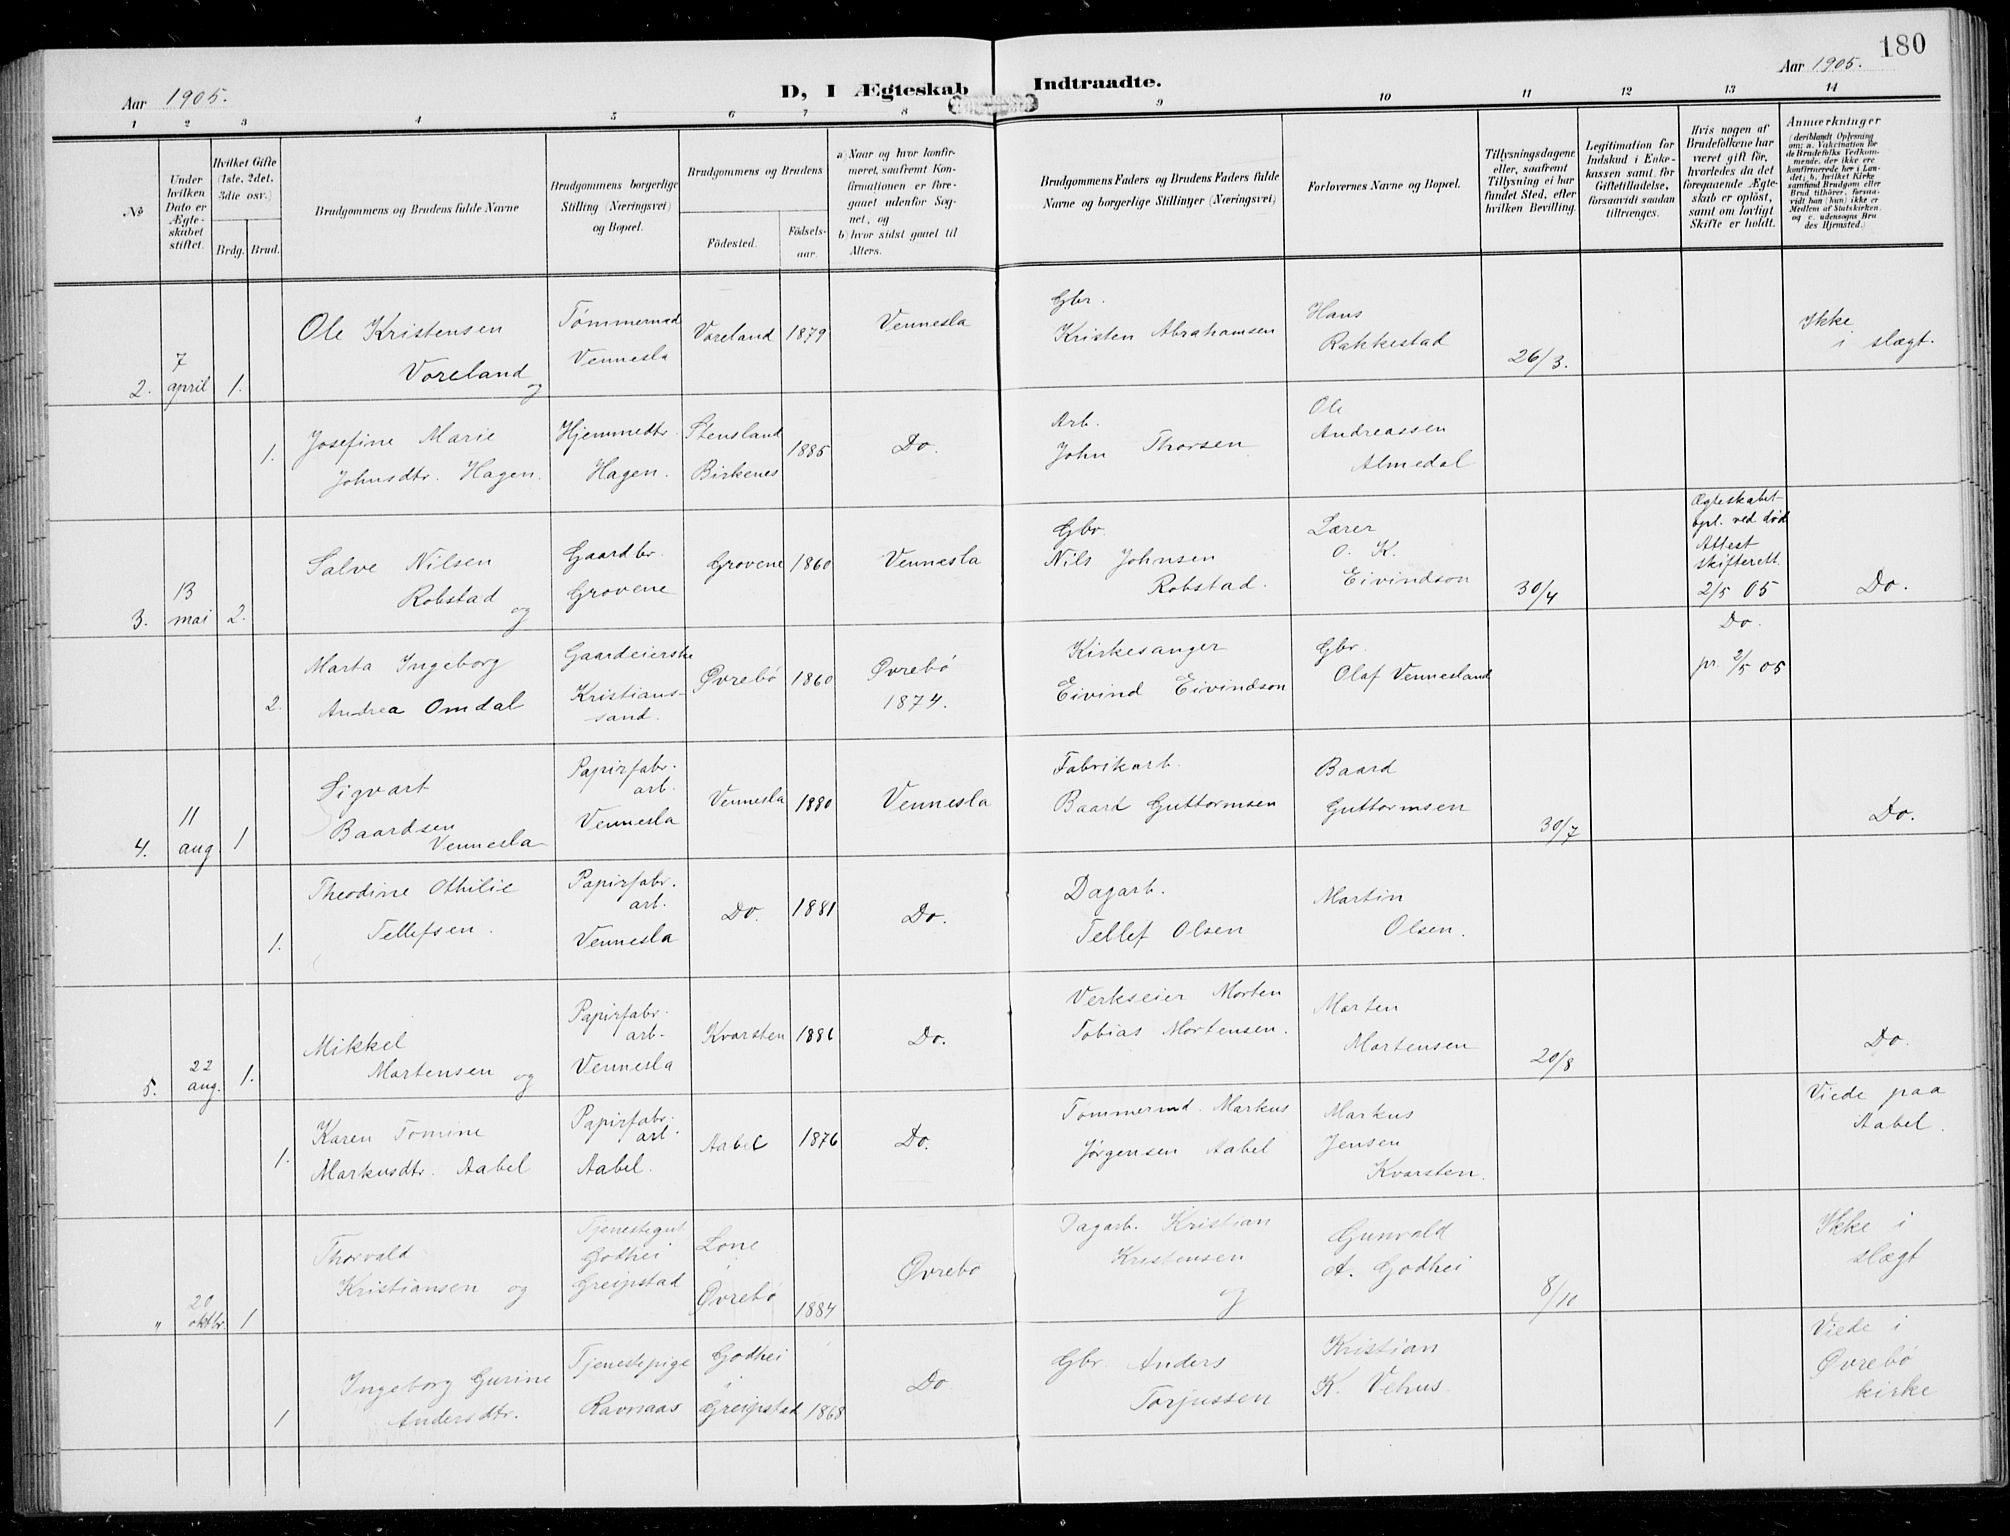 180
Aar 1905.
D, I Ægteskab Indtraadte.
Aar 1905.
1 2 3 4 5 6 7 8 9 10 11 12 13 14
№
Under hvilken Dato er Ægteskabet stiftet.
Hvilket Gifte (1ste, 2det, 3die osv.)
Brdg. Brud.
Brudgommens og Brudens fulde Navne
Brudgommens borgerlige Stilling (Næringsvei) og Bopæl.
Brudgommens og Brudens
Födested.
Födselsaar.
a) Naar og hvor konfirmeret, saafremt Konfirmationen er foregaaet udenfor Sognet, og
b) hvor sidst gaaet til Alters.
Brudgommens Faders og Brudens Faders fulde Navne og borgerlige Stillinger (Næringsvei)
Forlovernes Navne og Bopæl.
Tillysningsdagene eller, saafremt Tillysning ei har fundet Sted, efter hvilken Bevilling.
Legitimation for Indskud i Enkekassen samt. for Giftetilladelse, forsaavidt saadan tiltrænges.
Hvis nogen af Brudefolkene har været gift för, hvorledes da det foregaaende Ægteskab er oplöst, samt om lovligt Skifte er holdt.
Anmærkninger
(deriblandt Oplysning om; a. Vakcination for de Brudefolks Vedkommende, der ikke ere konfirmerede her i Landet; b. hvilket Kirkesamfund Brudgom eller Brud tilhörer, forsaavidt han (hun) ikke er Medlem af Statskirken og c. udensogns Brudes Hjemsted.)
2. 7 april 1.
Ole Kristensen
Voreland og
Tømmermd
Vennesla
Voreland 1879
Vennesla
Gbr.
Kristen Abrahamsen
Hans
Rakkestad
26/3.
Ikke
i slægt.
1.
Josefine Marie
Johnsdtr. Hagen.
Hjemmedtr.
Hagen.
Stensland
Birkenes
1885
Do.
Arb.
John Thorsen
Ole
Andreassen
Almedal
3. 13 mai 2.
Salve Nilsen
Robstad og
Gaardbr.
Grovene
Grovene 1860
Vennesla
Gbr.
Nils Johnsen
Robstad.
Lærer
O. K.
Eivindson
30/4
Ægteskabet
opl. ved død
Attest
skifterett.
2/5 05
Do.
2.
Marta Ingeborg
Andrea Omdal
Gaardeierske
Kristians-
sand.
Øvrebø 1860
Øvrebø
1874.
Kirkesanger
Eivind Eivindson
Gbr.
Olaf Vennesland
Do.
pr. 2/5 05
4. 11 aug. 1
Sigvart
Baardsen
Vennesla
Papirfabr.
arb.
Vennesla
Vennesla 1880
Vennesla
Fabrikarb.
Baard Guttormsen
Baard
Guttormsen
30/7
Do.
1.
Theodine Othilie
Tellefsen.
Papirfabr.
arb.
Vennesla
Do. 1881
Do.
Dagarb.
Tellef Olsen
Martin
Olsen.
5. 22 aug. 1.
Mikkel
Mortensen og
Papirfabr.
arb.
Vennesla
Kvarsten 1886
Do.
Verkseier Morten
Tobias Mortensen.
Morten
Mortensen
20/8
Do.
1.
Karen Tomine
Markusdtr. Aabel
Papirfabr.
arb.
Aabel.
Aabel 1876
Do.
Tømmermd. Markus
Jørgensen Aabel
Markus
Jensen
Kvarsten.
Viede paa
Aabel.
" 20 oktbr. 1
Thorvald
Kristiansen og
Tjenestegut
Godhei
Greipstad
Lone
i
Øvrebø 1884
Øvrebø
Dagarb. Kristian
Kristensen
og
Gunvald
A. Godhei
8/10
Ikke i
slægt
1
Ingeborg Gurine
Andersdtr.
Tjenestepige
Ravnaas
Godhei
i
Greipstad 1868
Do
Gbr. Anders
Torjussen
Kristian
K. Vehus
Viede i
Øvrebø
kirke